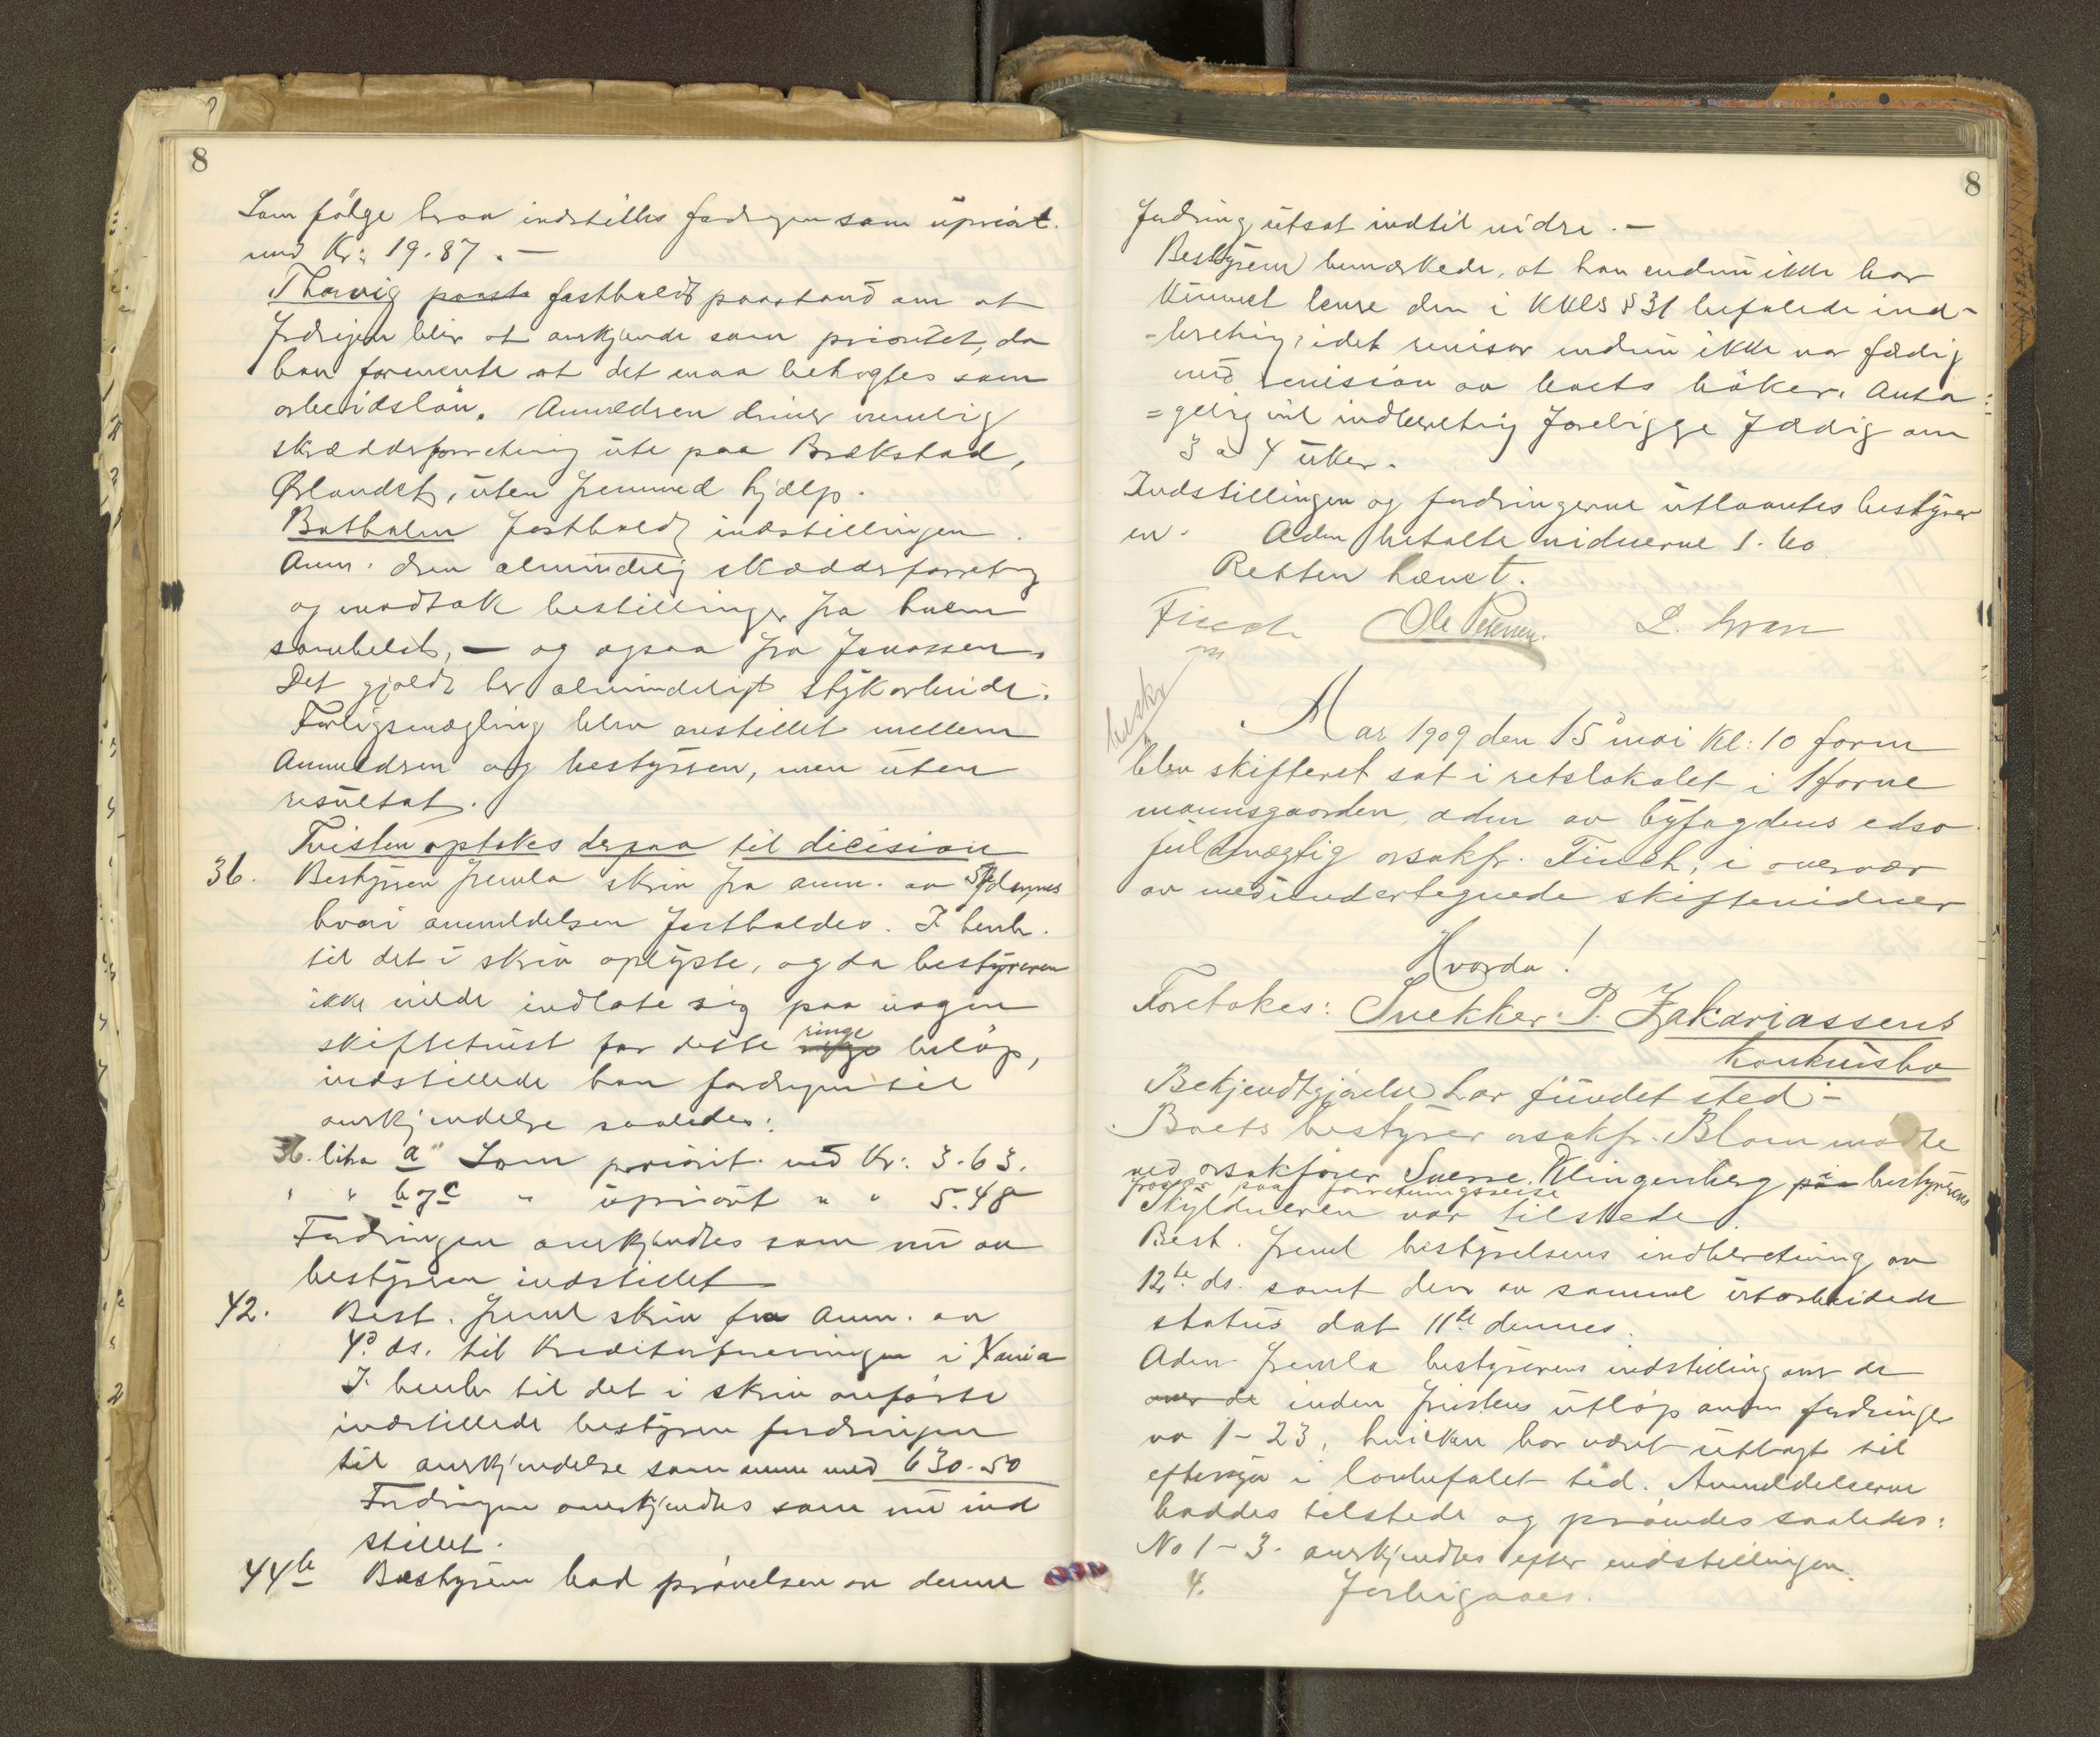 8
Som følge herav indstilles fordringen som uprior.
med Kr: 19.87. —
Thorvig paasto fastholdt paastand om at
fordringen blir at anerkjende som prioritet, da
han formente at det maa betragtes som
arbeidsløn. Anmelderen driver nemlig
skrædderforretning ute paa Brekstad,
Ørlandet, uten fremmed hjælp.
Batholm fastholdt indstillingen.
Anm. drev almindelig skrædderforretning
og modtok bestillinger fra hvem
somhelst, — og ogsaa fra Jonassen.
Det gjaldt her almindeligt stykarbeide.
Forligsmægling blev anstillet mellem
Anmelderen og bestyreren, men uten
resultat.
Tvisten optokes derpaa til decision
36. Bestyreren fremla skriv fra anm. av dennes
hvori anmeldelsen fastholdes. I henh.
til det i skriv oplyste, og da bestyreren
ikke vilde indlate sig paa nogen
skiftetvist for dette ringe beløp,
indstillede han fordringen til
anerkjendelse saaledes:
36. litra a Som priorit. med Kr: 3.63.
" " b og c " upriorit " " 5.48
Fordringen anerkjendtes som nu av
bestyreren indstillet
42. Best. freml skriv fra anm. av
4de ds. til Kreditorforeningen i Xania
I henh til det i skriv anførte
indstillede bestyreren fordringen
til anerkjendelse som anm med 630.50
Fordringen anerkjendtes som nu ind
stillet.
44 b Bestyreren bad prøvelsen av denne
8
fordring utsat indtil videre. —
Bestyreren bemærkede, at han endnu ikke har
kunnet levere den i KKLs § 31 befalede ind-
-beretning, idet revisor endnu ikke var færdig
med revision av boets bøker. Anta=
=gelig vil indberetning foreligge færdig om
3 a 4 uker.
Indstillingen og fordringerne utlaantes bestyrer
en. Adm betalte vidnerne 1.60
Retten hævet.
Finch Ole Petersen. L. Gran
beskr
Aar 1909 den 15de mai Kl: 10 form
blev skifteret sat i retslokalet i Horne
mannsgaarden, adm av byfogdens edsv
fuldmægtig orsakfr. Finch, i overvær
av medundertegnede skiftevidner
Hvorda!
Foretokes: Snekker P. Zakariassens
konkursbo
Bekjendtgjørelse har fundet sted –
Boets bestyrer orsakfr. Blom møtte
ved orsakfører Sverre Klingenberg paa i bestyrerens
fravær paa forretningsreise
Skyldneren var tilstede.
Best. freml bestyrelsens indberetning av
12te ds. samt den av samme utarbeidede
status dat 11te dennes.
Adm fremla bestyrerens indstilling over de
over de inden fristens utløp anm fordringer
no 1–23, hvilken har været utlagt til
eftersyn i lovbefalet tid. Anmeldelserne
haddes tilstede og prøvedes saaledes:
No 1–3. anerkjendtes efter indstillingen.
4. Forbigaaes.